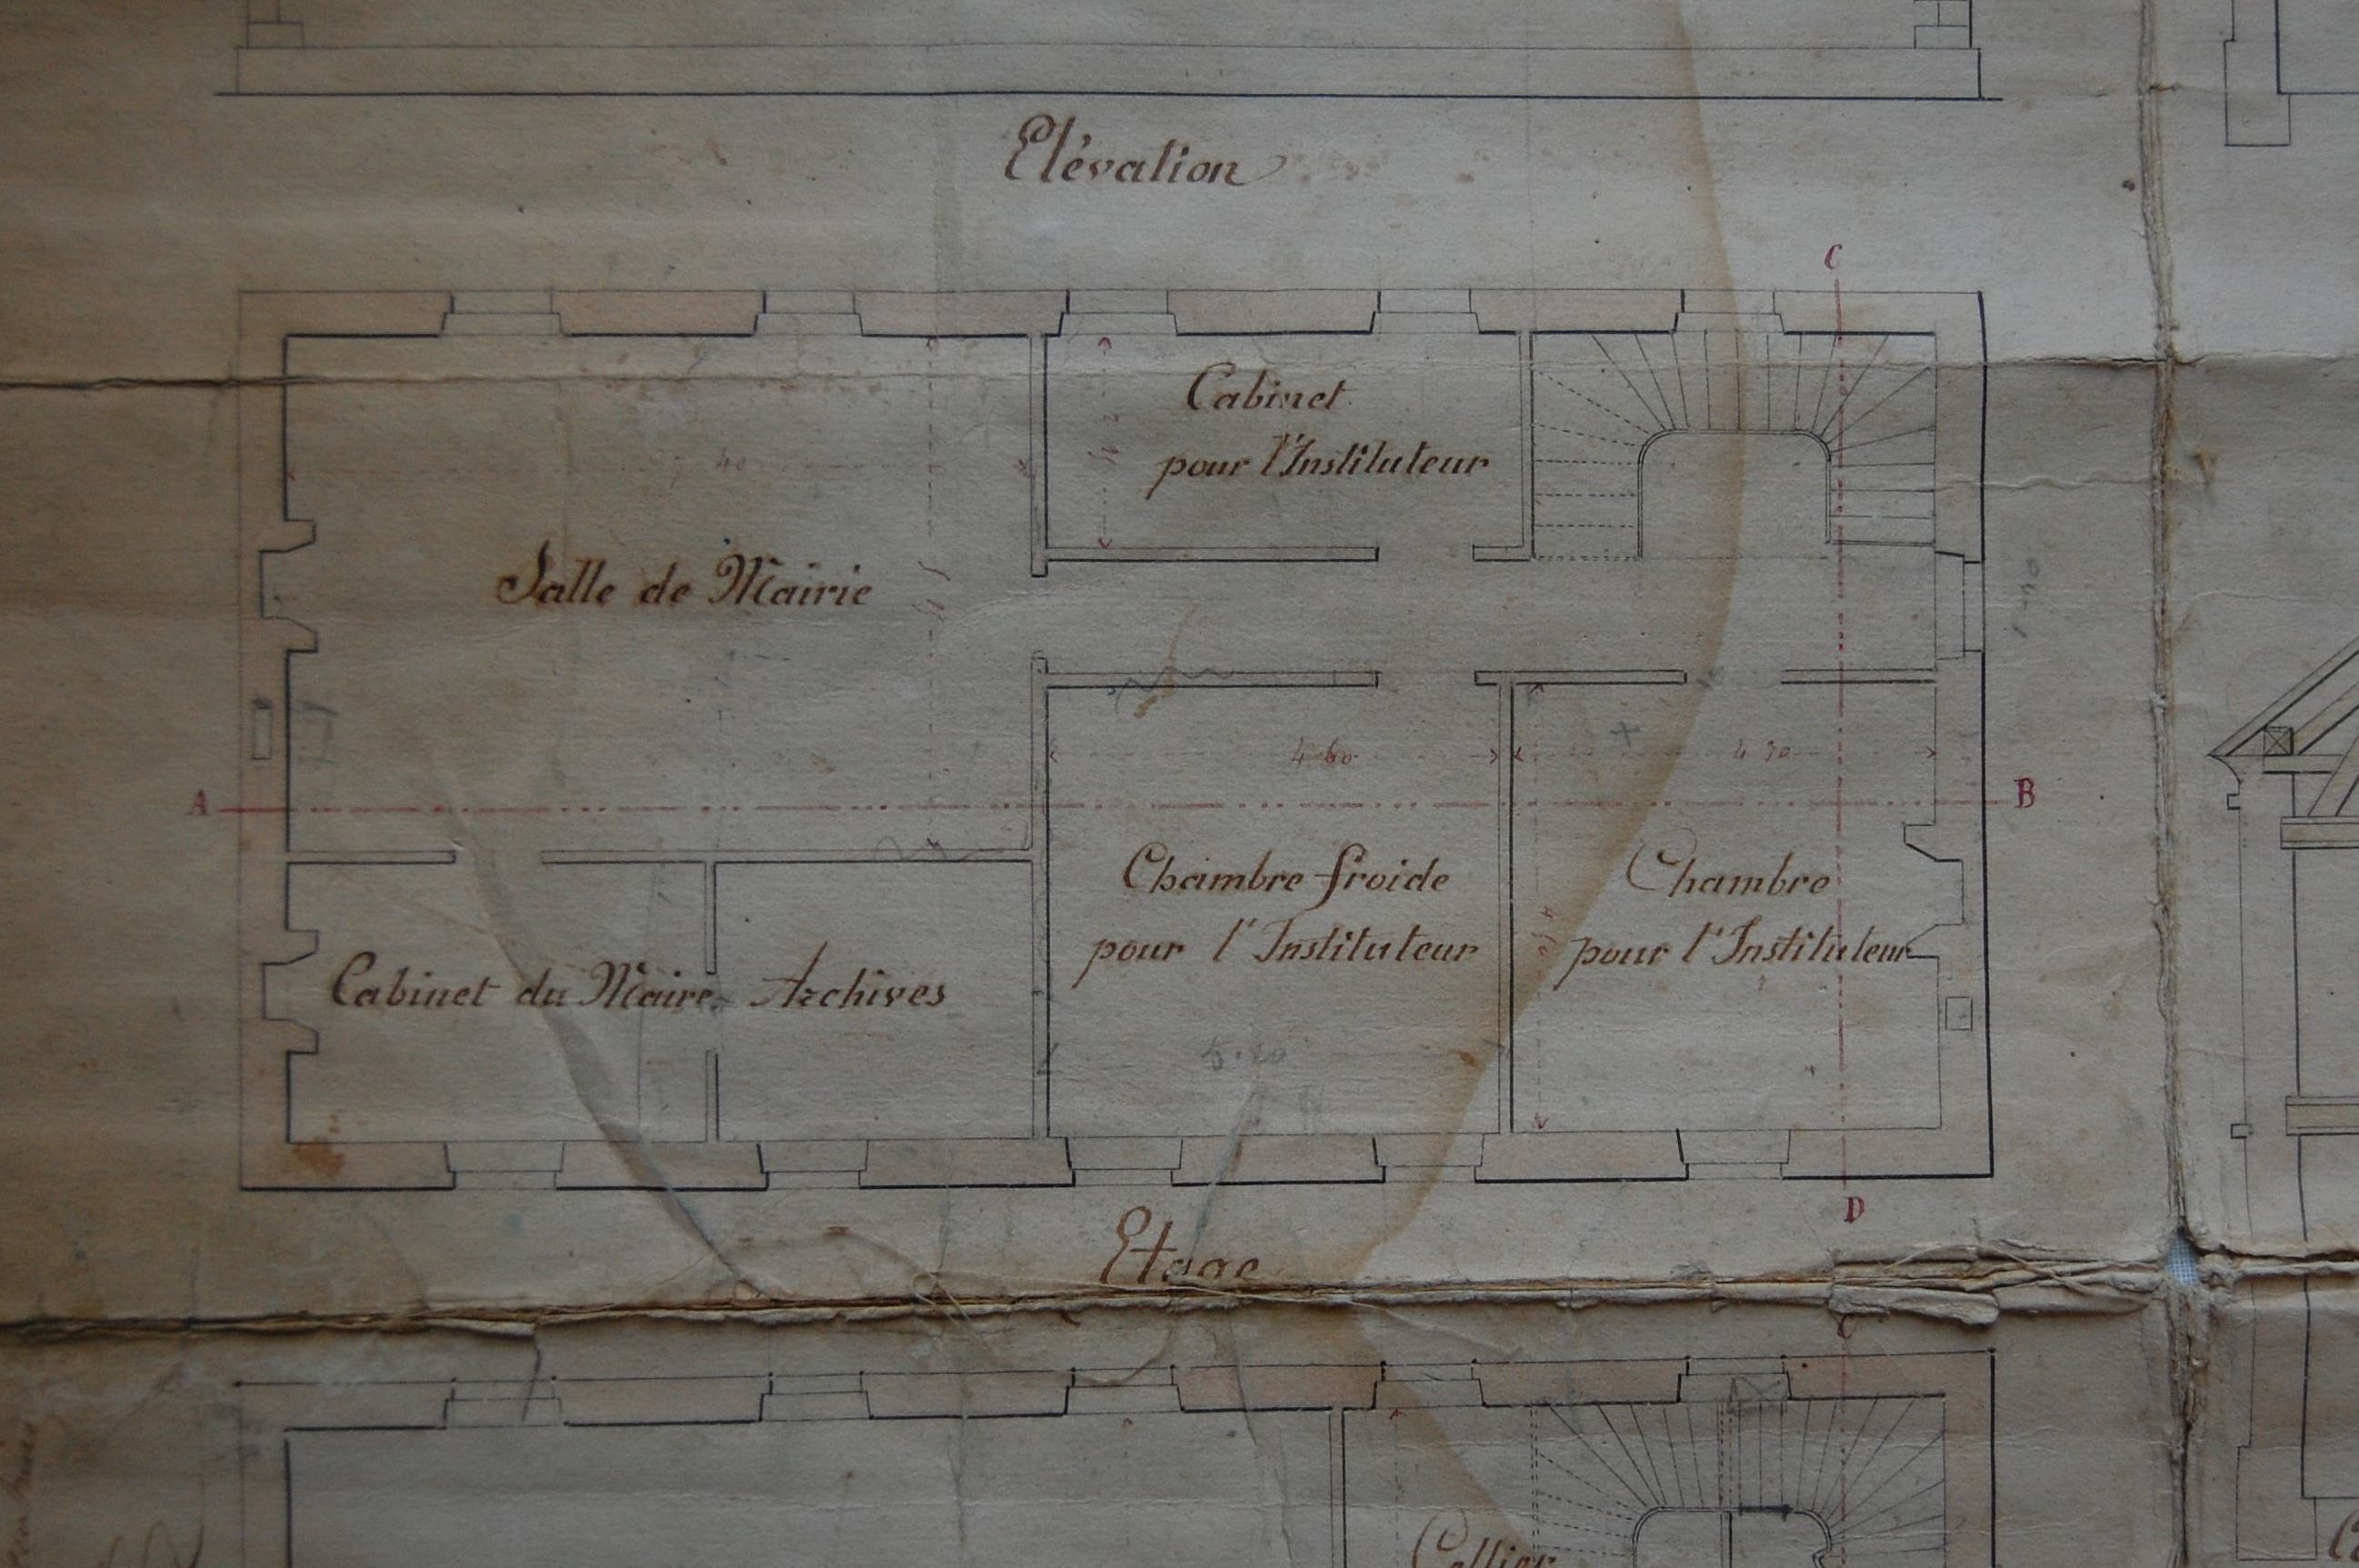 Elévation
C
Cabinet
pour l'Instituteur
7,40
Salle de Mairie
4 60
4 30
A
B
Chambre froide
pour l'Instituteur
Chambre
pour l'Instituteur
Cabinet du Maire
Archives
5.20
D
Etage
C
Cellier